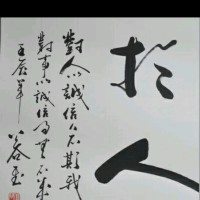 人
對人以誠信人不欺我
對事以誠信事無不成
壬辰年